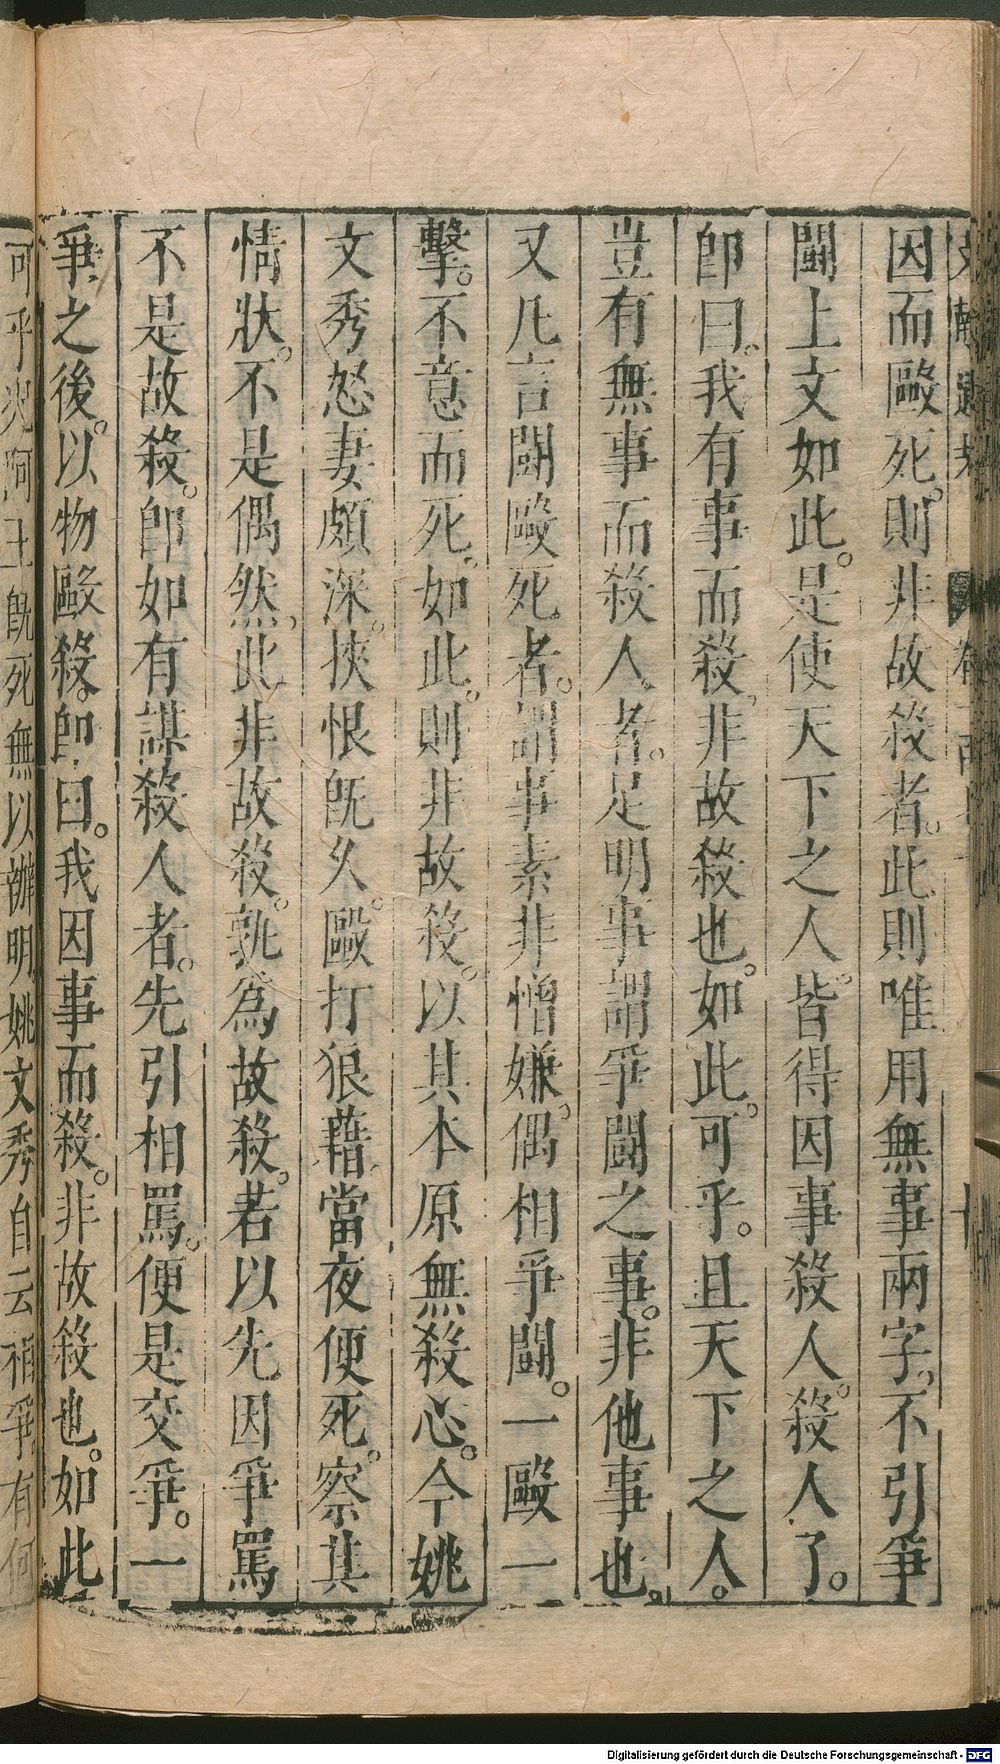 因而毆死。則非故殺者。此則唯用無事兩字。不引爭
鬪上文如此。是使天下之人。皆得因事殺人。殺人了。
卽曰。我有事而殺。非故殺也。如此。可乎。且天下之人。
豈有無事而殺人者。足明事謂爭鬪之事。非他事也。
又凡言鬪毆死者。謂事素非憎嫌。偶相爭鬪。一毆一
擊。不意而死。如此。則非故殺。以其本原無殺心。今姚
文秀怒妻頗深。挾恨旣久。毆打狼藉。當夜便死。察其
情狀。不是偶然。此非故殺。孰爲故殺。若以先因爭罵
不是故殺。卽如有謀殺人者。先引相罵。便是交爭。一
爭之後。以物毆殺。卽曰。我因事而殺。非故殺也。如此
可乎況阿王旣死無以辦明姚文秀自云相爭有何
Digitalisierung gefördert durch die Deutsche Forschungsgemeinschaft - DFG